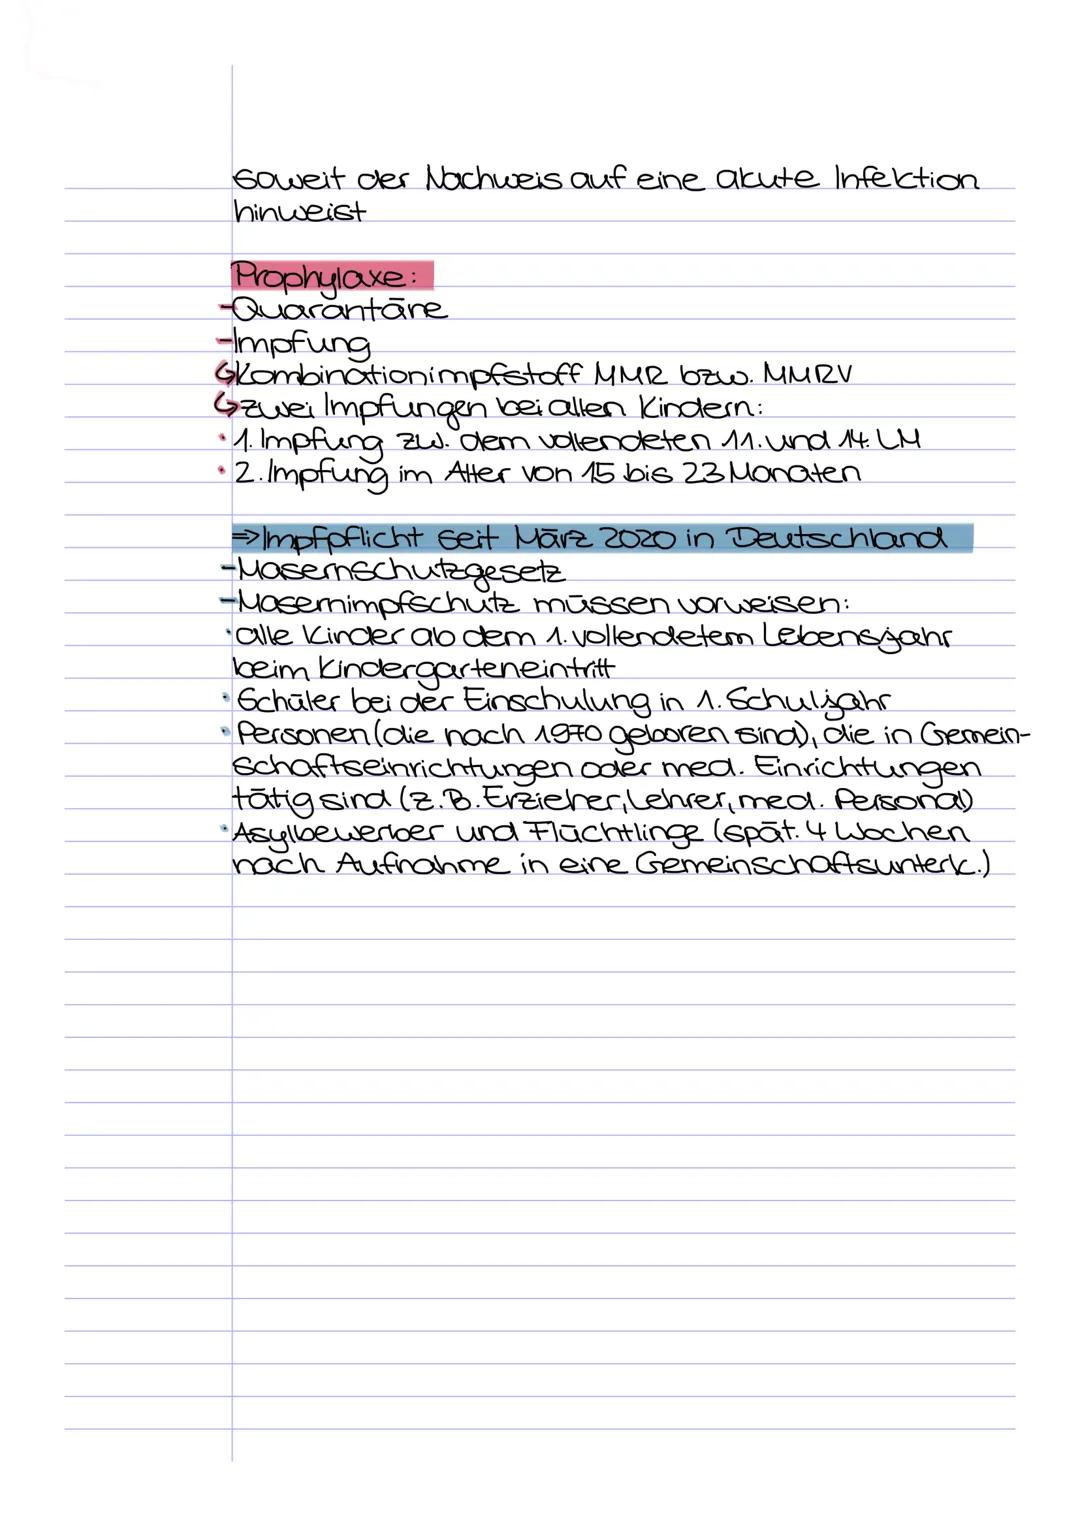 soweit der Nachweis auf eine akute Infektion
hinweist
Prophylaxe:
-Quarantäne
-Impfung
↳Kombinationimpfstoff MMR bzw. MMRV
↳zwei Impfungen bei allen Kindern:
• 1. Impfung zw. dem vollendeten 11. und 14. LM
• 2. Impfung im Alter von 15 bis 23 Monaten
⇒Impfpflicht seit März 2020 in Deutschland
-Masernschutzgesetz
-Masernimpfschutz müssen vorweisen:
• alle Kinder ab dem 1. vollendetem Lebensjahr
beim Kindergarteneintritt
• Schüler bei der Einschulung in 1. Schuljahr
• Personen (die nach 1970 geboren sind), die in Gemein-
schaftseinrichtungen oder med. Einrichtungen
tätig sind (z.B. Erzieher, Lehrer, med. Personal)
• Asylbewerber und Flüchtlinge (spät. 4 Wochen
nach Aufnahme in eine Gemeinschaftsunterk.)